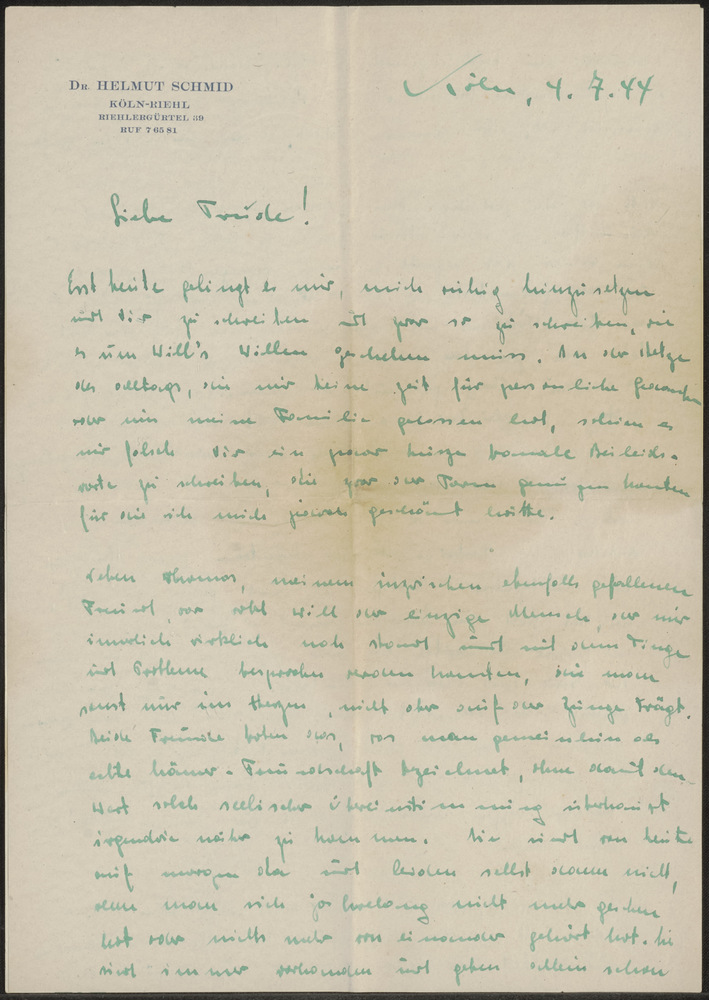 DR. HELMUT SCHMID
KÖLN-RIEHL
RIEHLERGÜRTEL 39
RUF 7 65 81
Köln, 4. 7. 44
Liebe Trude!
Erst heute gelingt es mir, mich ruhig hinzusetzen
und Dir zu schreiben und zwar so zu schreiben, wie
es um Will's Willen geschehen muss. In der Hetze
des Alltags, die mir keine Zeit für persönliche Gedanken
oder um meine Familie gelassen hat, schien es
mir falsch Dir ein paar kurze banale Beileids-
worte zu schreiben, die zwar der Form genügen konnten
für die ich mich jedoch geschämt hätte.
Neben Thomas, meinem inzwischen ebenfalls gefallenen
Freund, war wohl Will der einzige Mensch, der mir
innerlich wirklich nah stand und mit dem Dinge
und Probleme besprochen werden konnten, die man
sonst nur im Herzen, nicht aber auf der Zunge trägt.
Beide Freunde boten das, was man gemeinhin als
echte Männer-Freundschaft bezeichnet, ohne damit dem
Wert solch seelischer Übereinstimmung überhaupt
irgendwie näher zu kommen. Sie sind von heute
auf morgen da und leiden selbst dann nicht,
wenn man sich jahrelang nicht mehr gesehen
hat oder nichts mehr von einander gehört hat. Sie
sind immer vorhanden und geben allein schon